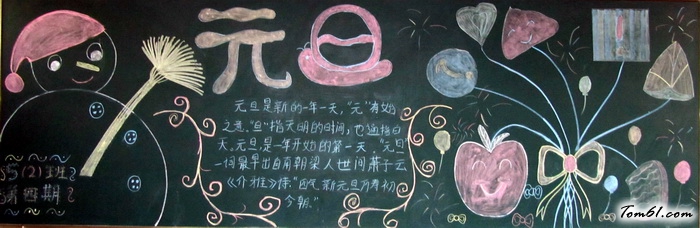 元旦
元旦是新的一年一天,“元”有始
之意,“旦”指天明的时间,也通指白
天。元旦是一年开始的第一天。“元旦”
一词最早出自南朝梁人世间萧子云
《介雅》诗:“四气新元旦,万寿初
今朝。”
5(2)班
第四期
Tom61.com